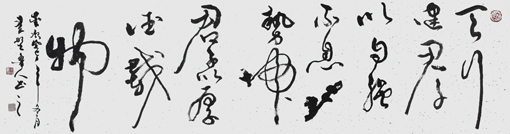 天行
健君子
以自强
不息
地势坤
君子以厚
德载
物